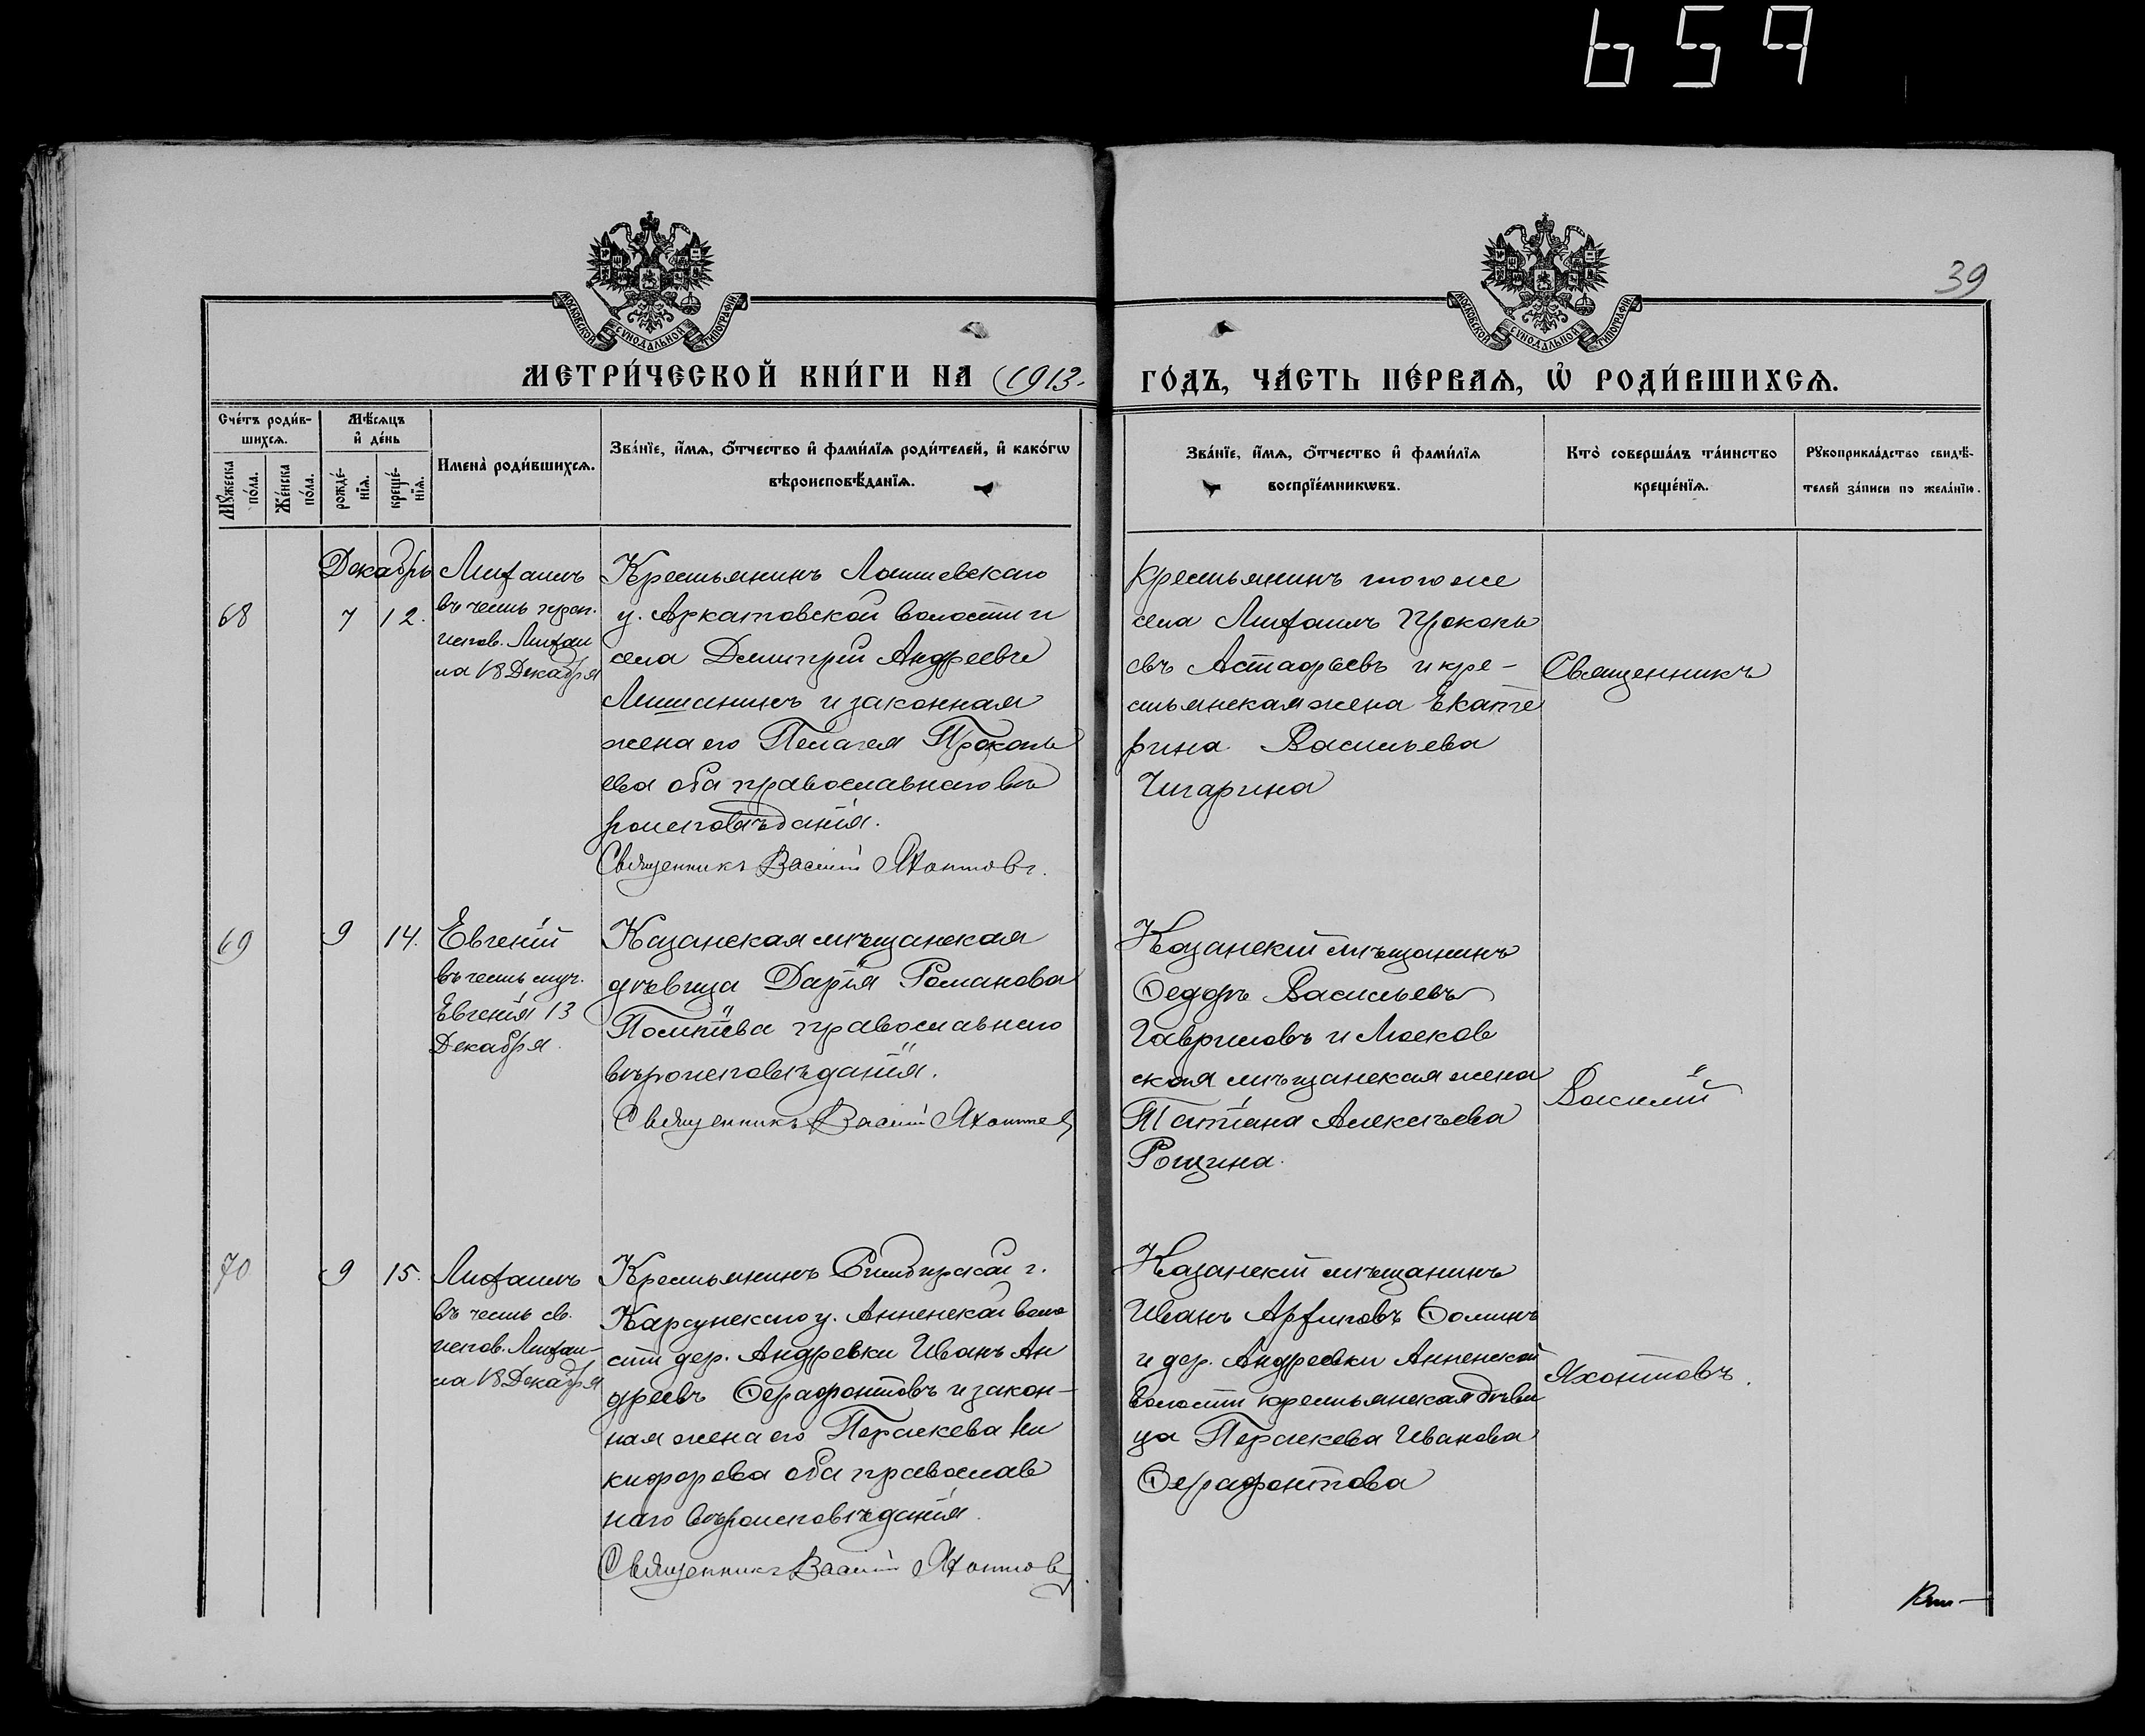 659
39
МОСКОВСКОЙ СѴНОДАЛЬНОЙ ТИПОГРАФІИ
МОСКОВСКОЙ СѴНОДАЛЬНОЙ ТИПОГРАФІИ
МЕТРИ́ЧЕСКОЙ КНИ́ГИ НА 1913. ГО́ДЪ, ЧА́СТЬ ПЕ́РВАѦ, Ѡ҆ РОДИ́ВШИХСѦ.
Сче́тъ роди́в-
шихсѧ.
Мѣ́сѧцъ
и҆ де́нь
Мꙋ́жеска по́ла.
Же́нска по́ла.
рожде́-
нїѧ.
креще́-
нїѧ.
Имена̀ роди́вшихсѧ.
Зва́нїе, и҆́мѧ, ѻ҆́тчество и҆ фами́лїѧ роди́телей, и҆ како́гѡ
вѣроисповѣ́данїѧ.
Зва́нїе, и҆́мѧ, ѻ҆́тчество и҆ фами́лїѧ
воспрїе́мникѡвъ.
Кто̀ соверша́лъ та́инство
креще́нїѧ.
Рꙋкоприкла́дство свидѣ́-
телей за́писи по жела́нїю.
Декабрь
68
7 12.
въ честь преп.
испов.
на 18 Декабря
Крестьянинъ Лаишевскаго
у. волости и
села Димитрій Андреевъ
и законная
жена его Пелагея Прокопь
ева оба православнаго вѣ
роисповѣданія.
Священникъ Василій Яхонтовъ.
Крестьянинъ того же
села Прокопь
евъ Астафьевъ и кре-
стьянская жена Екате
рина Васильева
Чигарина
Священникъ
69
9 14.
Евгеній
въ честь муч.
Евгенія 13
Декабря.
Казанская мѣщанская
дѣвица Дарія Романова
православнаго
вѣроисповѣданія.
Священникъ Василій Яхонтовъ
Казанскій мѣщанинъ
Ѳеодоръ Васильевъ
Гавриловъ и Москов
ская мѣщанская жена
Татіана Алексѣева
Рощина.
Василій
70
9 15.
въ честь св.
испов.
на 18 Декабря
Крестьянинъ Симбирской г.
Карсунскаго у. Анненской воло
сти дер. Андревки Иванъ Ан
дреевъ Ѳерафонтовъ и закон-
ная жена его Параскева Ни
кифорова оба православ
наго вѣроисповѣданія.
Священникъ Василій Яхонтовъ
Казанскій мѣщанинъ
Иванъ Ѳоминъ
и дер. Андреевки Анненской
волости крестьянская дѣви
ца Параскева Иванова
Ѳерафонтова
Яхонтовъ.